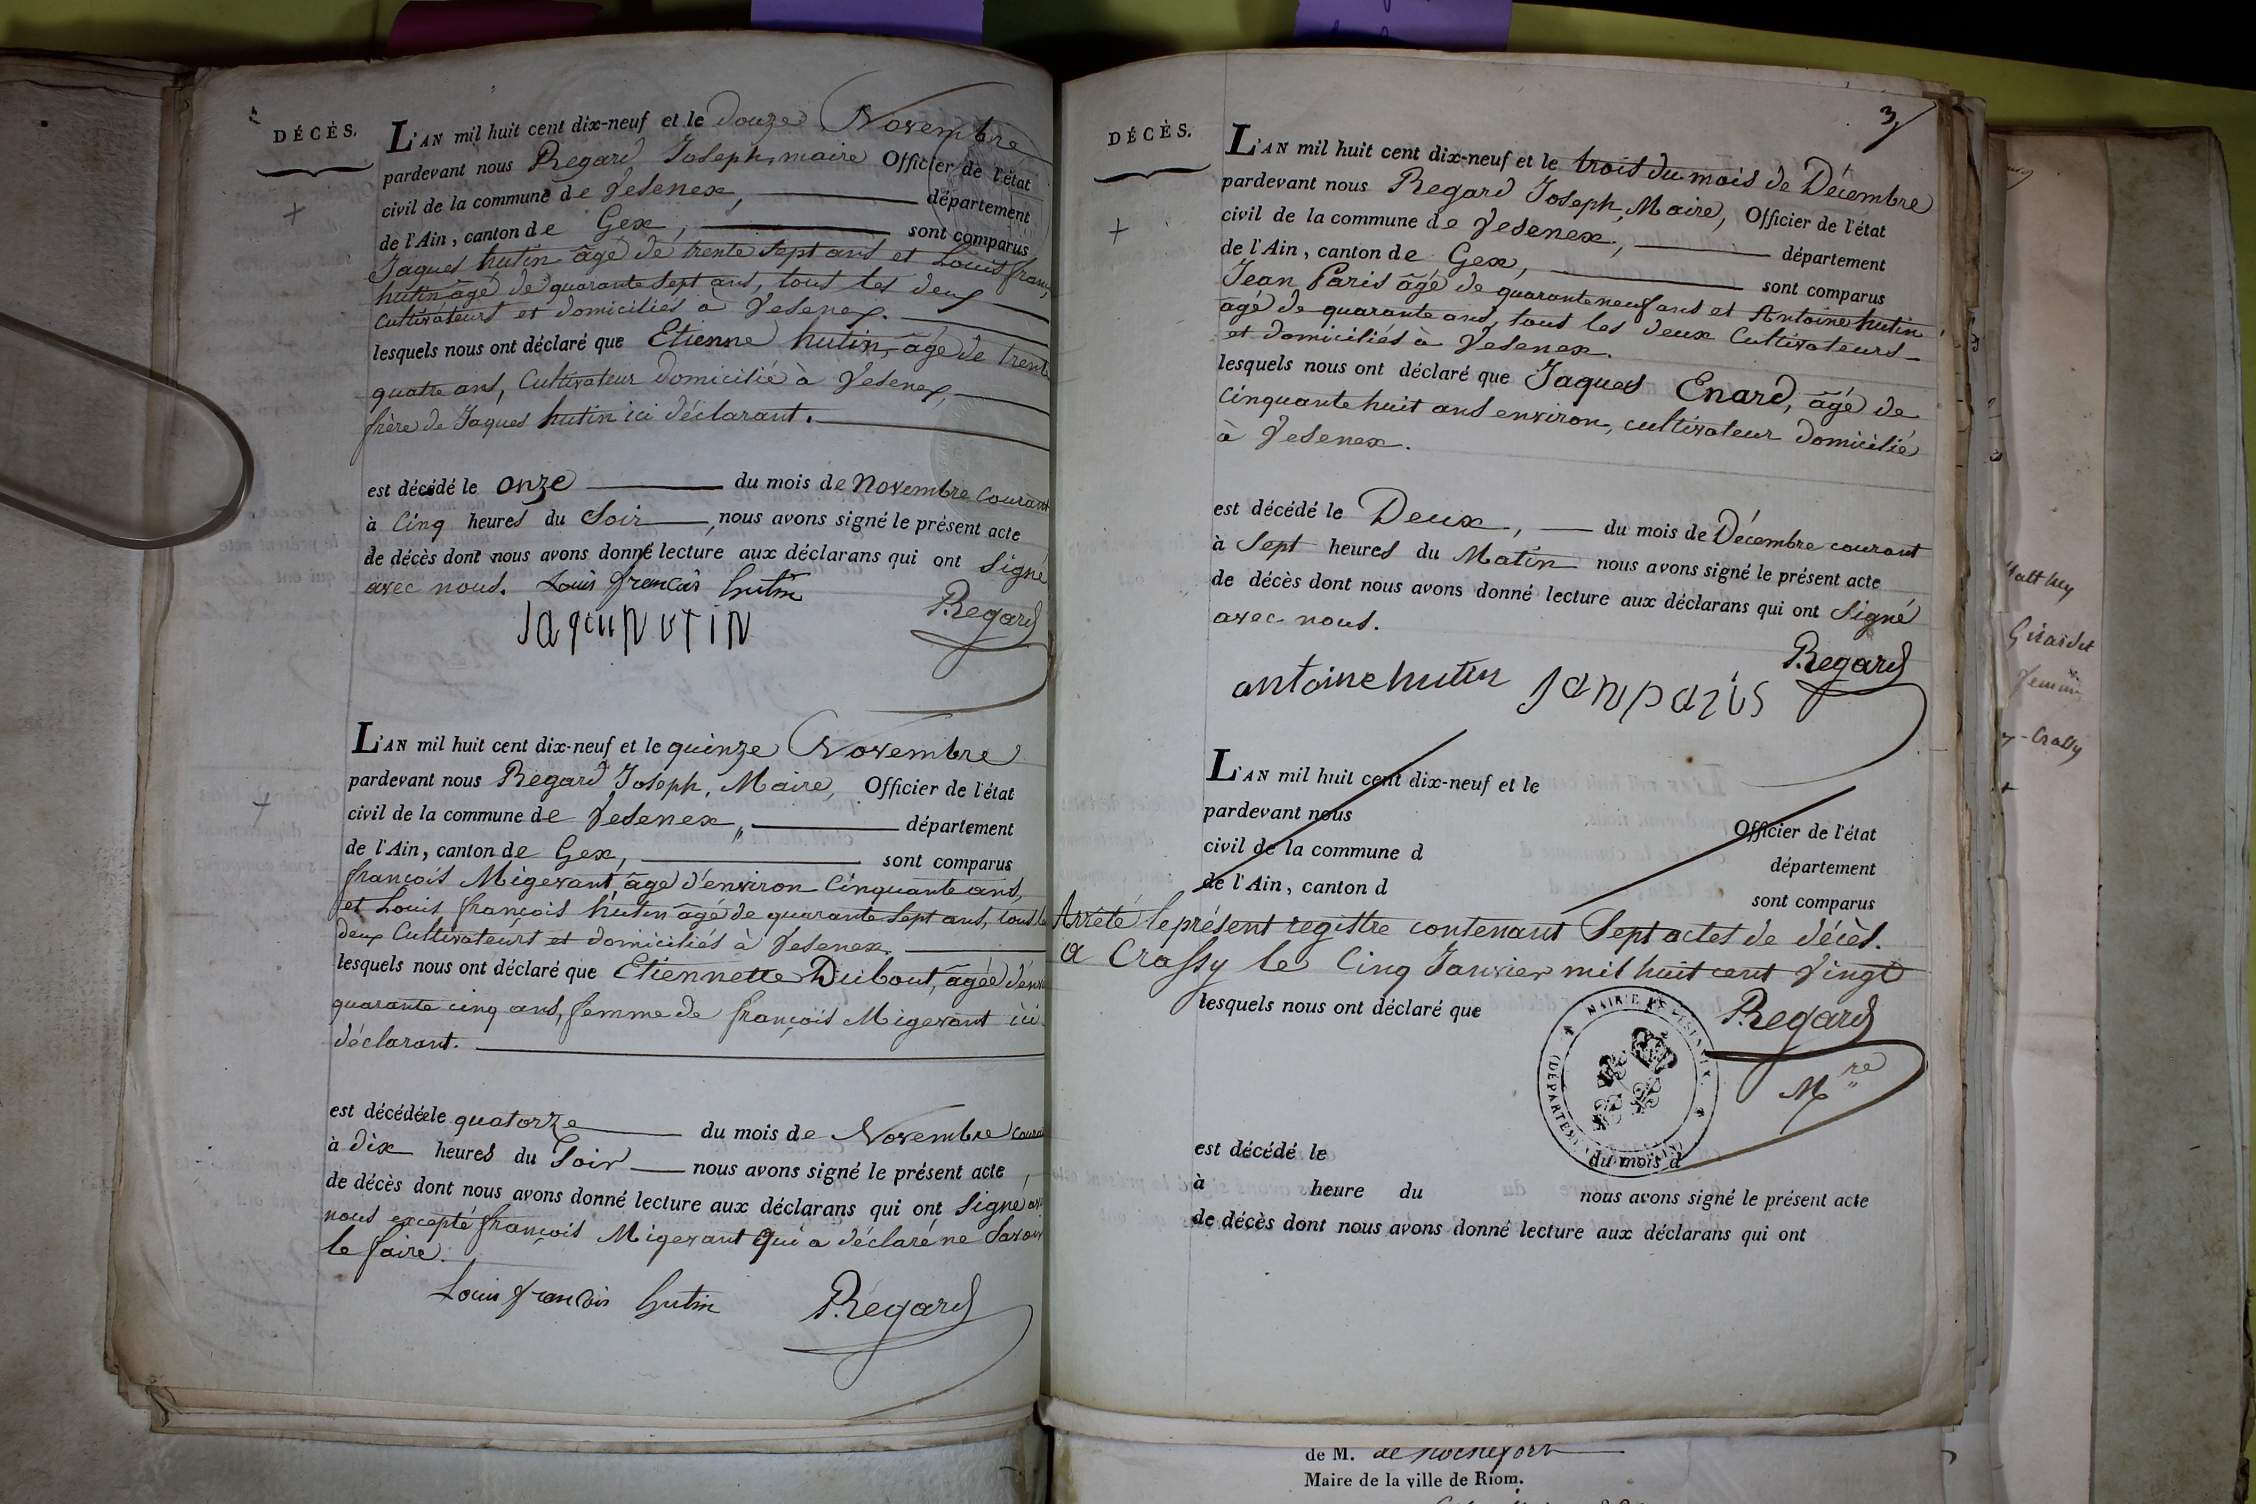 DÉCÈS.
L'AN mil huit cent dix-neuf et le douze Novembre
pardevant nous Regard Joseph, maire Officier de l'état
civil de la commune de Vesenex, département
de l'Ain, canton de Gex, sont comparus
Jaques hutin âgé de trente sept ans et Louis fran
hutin âgé de quarante sept ans, tous les deux
Cultivateurs et domiciliés à Vesenex.
lesquels nous ont déclaré que Etienne hutin, âgé de trente
quatre ans, Cultivateur domicilié à Vesenex,
frère de Jaques hutin ici déclarant.
est décédé le onze du mois de Novembre courant
à Cinq heures du Soir, nous avons signé le présent acte
de décès dont nous avons donné lecture aux déclarans qui ont Signé
avec nous. Louis francois hutin
Regard
L'AN mil huit cent dix-neuf et le quinze Novembre
pardevant nous Regard Joseph, Maire, Officier de l'état
civil de la commune de Vesenex, département
de l'Ain, canton de Gex, sont comparus
françois Migevant, âgé d'environ Cinquante ans,
et Louis françois hutin âgé de quarante Sept ans, tous le
deux Cultivateurs et domiciliés à Vesenex.
lesquels nous ont déclaré que Etiennette Dubout, âgée d'env
quarante cinq ans, femme de françois Migevant ici
déclarant.
est décédée le quatorze du mois de Novembre coura
à dix heures du Soir nous avons signé le présent acte
de décès dont nous avons donné lecture aux déclarans qui ont Signé av
nous excepté françois Migevant qui a déclaré ne Savoir
le faire.
Louis francois hutin Regard
3
DÉCÈS.
L'AN mil huit cent dix-neuf et le trois du mois de Décembre
pardevant nous Regard Joseph, Maire, Officier de l'état
civil de la commune de Vesenex, département
de l'Ain, canton de Gex, sont comparus
Jean Paris âgé de quarante neuf ans et Antoine hutin
âgé de quarante ans, tous les deux Cultivateurs
et domiciliés à Vesenex.
lesquels nous ont déclaré que Jaques Enard, âgé de
Cinquante huit ans environ, cultivateur domicilié
à Vesenex.
est décédé le Deux, du mois de Décembre courant
à Sept heures du Matin nous avons signé le présent acte
de décès dont nous avons donné lecture aux déclarans qui ont Signé
avec nous.
Regard
antoine hutin Janparis
L'AN mil huit cent dix-neuf et le
pardevant nous Officier de l'état
civil de la commune d département
de l'Ain, canton d sont comparus
Arrêté le présent registre contenant Sept actes de décès.
a Crassy le Cinq Janvier mil huit cent Vingt
lesquels nous ont déclaré que
Regard
Mre
MAIRIE DE
(DÉPARTEMENT
est décédé le du mois d
à heure du nous avons signé le présent acte
de décès dont nous avons donné lecture aux déclarans qui ont
Girardet
Crassy
de M. de Rochefort
Maire de la ville de Riom.